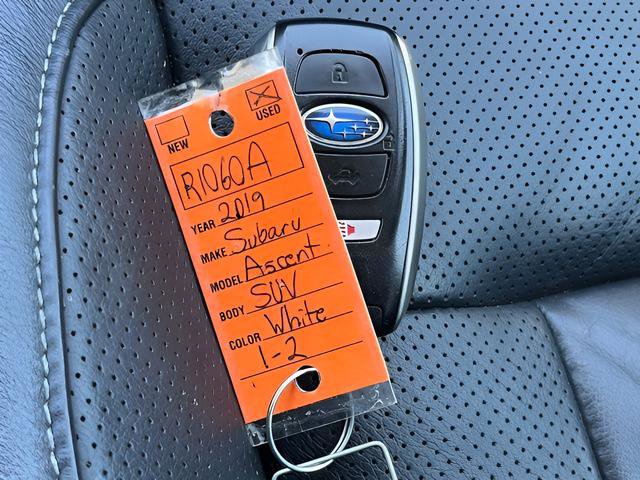 NEW USED
R1060A
YEAR 2019
MAKE Subaru
MODEL Ascent
BODY SUV
COLOR White
1-2